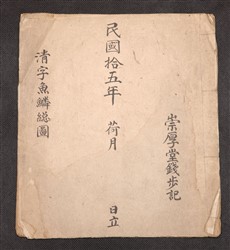 崇厚堂錢步記
民國拾五年 荷月 日立
清字魚鱗總圖